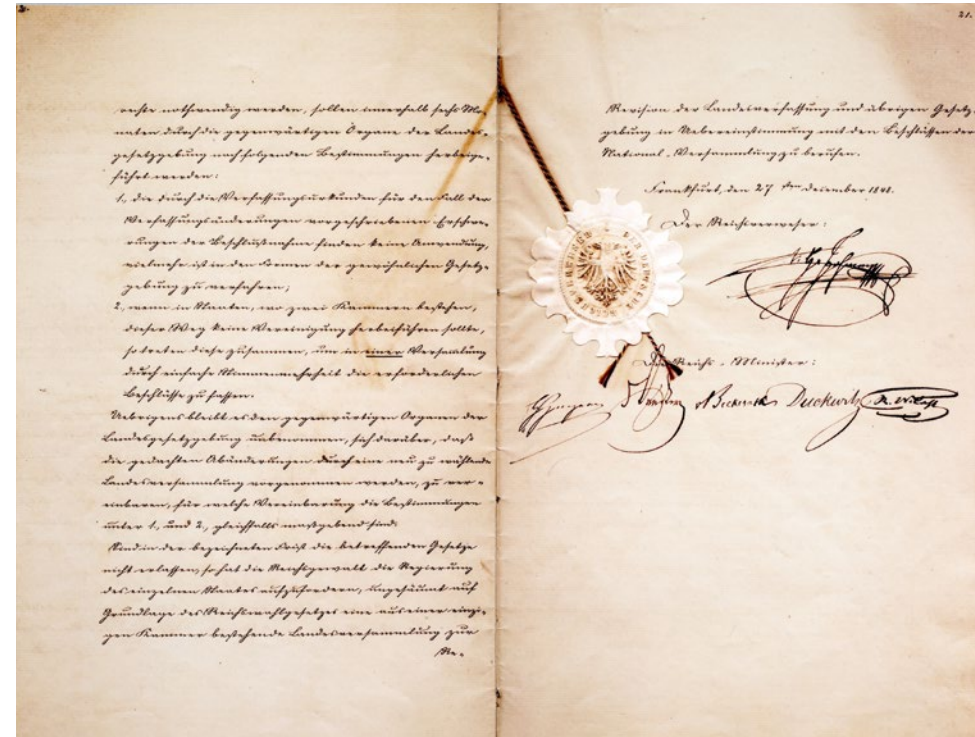 rechte nothwendig werden, sollen innerhalb sechs Mo-
naten durch die gegenwärtigen Organe der Landes-
gesetzgebung nach folgenden Bestimmungen herbeige-
führt werden:
1., die durch die Verfassungsurkunden für den Fall der
Verfassungsänderungen vorgeschriebenen Erschwe-
rungen der Beschlußnahme finden keine Anwendung,
vielmehr ist in den Formen der gewöhnlichen Gesetz-
gebung zu verfahren;
2., wenn in Staaten, wo zwei Kammern bestehen,
dieser Weg keine Vereinigung herbeiführen sollte,
so treten diese zusammen, um in einer Versammlung
durch einfache Stimmenmehrheit die erforderlichen
Beschlüsse zu fassen.
Uebrigens bleibt es den gegenwärtigen Organen der
Landesgesetzgebung unbenommen, sich darüber, daß
die gedachten Abänderungen durch eine neu zu wählende
Landesversammlung vorgenommen werden, zu ver-
einbaren, für welche Vereinbarung die Bestimmungen
unter 1., und 2., gleichfalls maßgebend sind.
Sind in der bezeichneten Frist die betreffenden Gesetze
nicht erlassen, so hat die Reichsgewalt die Regierung
des einzelnen Staates aufzufordern, ungesäumt auf
Grundlage des Reichswahlgesetzes eine aus einer einzi-
gen Kammer bestehende Landesversammlung zur
Re-
21.
Revision der Landesverfassung und übrigen Gesetz-
gebung in Uebereinstimmung mit den Beschlüssen der
National-Versammlung zu berufen.
Frankfurt, den 27ten December 1848.
Der Reichsverweser:
Die Reichs-Minister:
Duckwitz